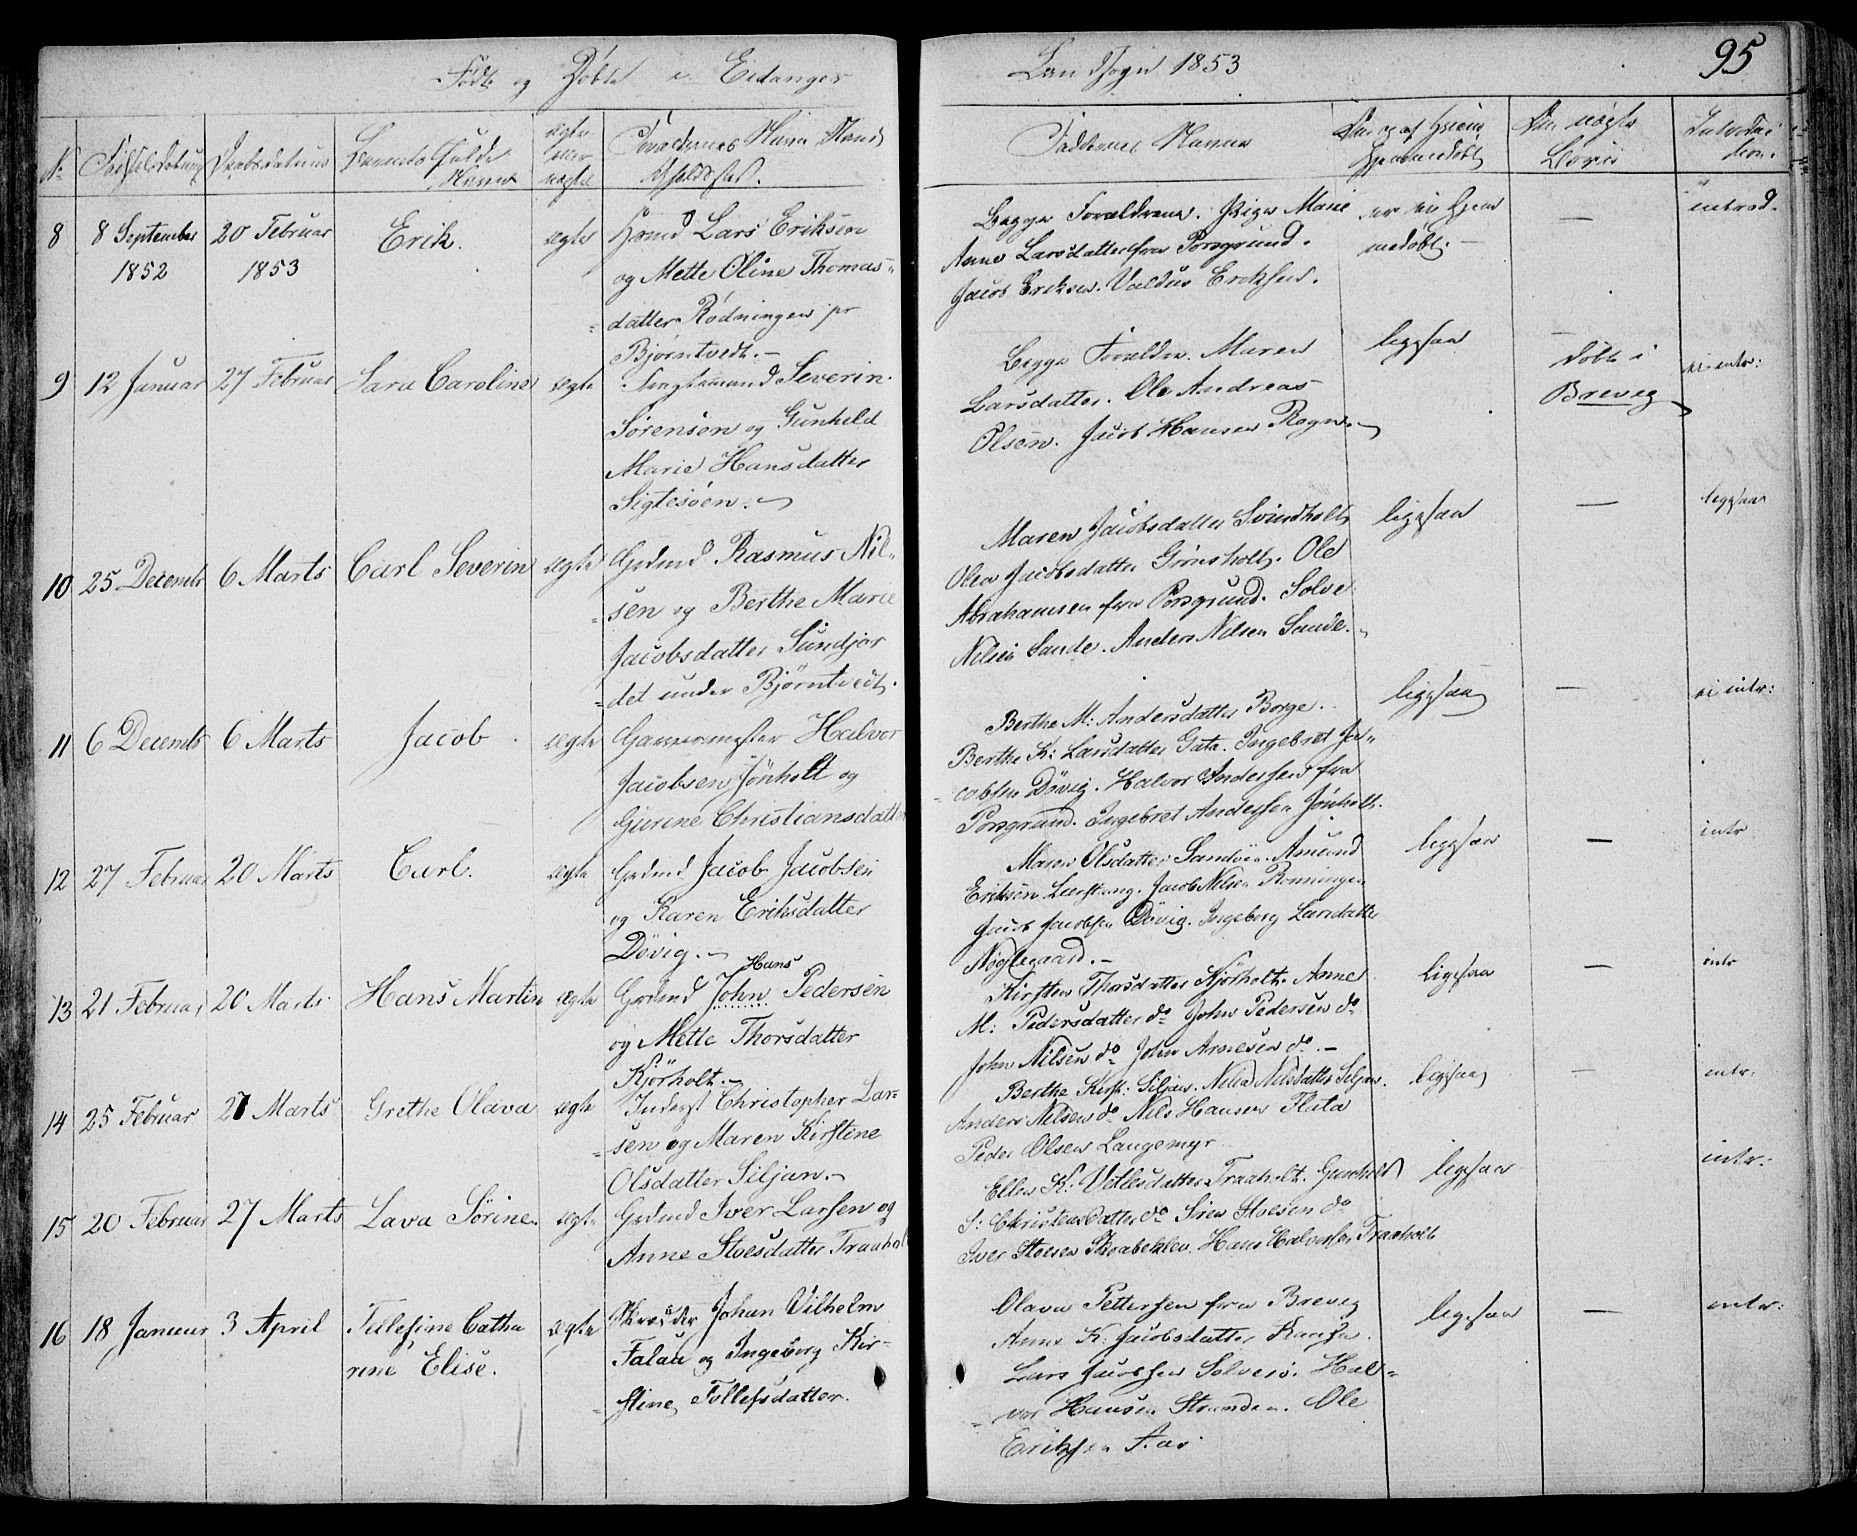 95
Fødte og Døbte i Eidanger
Landsogn 1853
No
Fødselsdatum
Daabsdatum
Barnets fulde
Navn
ægte
eller
uægte
Forældrenes Navn Stand
Opholdsted.
Faddernes Navne
Om og af hvem
hjemmedøbt
8
8 September
1852
20 Februar
1853
Erik.
ægte
Hmd Lars Eriksen
og Mette Oline Thomas-
datter Rødningen pr
Bjørntvedt.
Begge Forældrene. Pige Marie
Anne Larsdatter fra Porsgrund.
Jacob Eriksen. Valdus Eriksen.
er ei hjem
medøbt.
—
introd.
9
12 Januar
27 Februar
Sara Caroline
ægte
Severin
Sørensen og Gunhild
Marie Hansdatter
Sigtesøen.
Begge Forældre. Maren
Larsdatter. Ole Andreas
Olsen. Jacob Hansen Rogn.
ligesaa
døbt i
Brevig
ei intr:
10
25 Decembr
6 Marts
Carl Severin
ægte
Grdmd Rasmus Nil-
sen og Berthe Marie
Jacobsdatter Sundjor
det under Bjørntvedt.
Maren Jacobsdatter Svindholt,
Olea Jacobsdatter Grønsholt. Ole
Abrahamsen fra Porsgrund. Solve
Nilsen Sande. Anders Nilsen Sande.
ligesaa
—
ligesaa
11
6 Decembr
6 Marts
Jacob
ægte
Garvermester Halvor
Jacobsen Jønholt og
Gurine Christiansdatter
Berthe M: Andersdatter Borge.
Berthe K: Larsdatter Gata. Ingebret Ja-
cobsen Døvig. Halvor Andersen fra
Porsgrund. Ingebret Andersen Jønholt.
ligesaa
—
ei intr:
12
27 Februar
20 Marts
Carl.
ægte
Grdmd Jacob Jacobsen
og Karen Eriksdatter
Døvig.
Maren Olsdatter Sandøen. Amund
Eriksen Leerstang. Jacob Nilsen Rønningen
Jacob Jacobsen Døvig. Ingeborg Larsdatter
Nøglegaard.
ligesaa
—
intr
13
21 Februar
20 Marts
Hans Martin
ægte
Hans
Grdmd John Pedersen
og Mette Thorsdatter
Kjørholt.
Kirsten Thorsdatter Kjørholt. Anne
M: Pedersdatter do John Pedersen do
John Nilsen do John Arnesen do.
ligesaa
—
intr
14
25 Februar
27 Marts
Grethe Olava
ægte
Inderst Christopher Lar-
sen og Maren Kirstine
Olsdatter Siljan.
Berthe Kirst: Siljan. Nilsdatter Siljan.
Anders Nilsen do Nils Hansen Flata
Peder Olsen Langemyr
ligesaa
—
intr:
15
20 Februar
27 Marts
Lava Sørine.
ægte
Grdmd Iver Larsen og
Anne Stoesdatter Traaholt
Ellen K: Traaholt. Gunhild
S: Christensdatter do Siren Stoesen do
Iver Stoesen Skrabeklev. Hans Halvorsen Traaholt
ligesaa
—
intr:
16
18 Januar
3 April
Tellefine Catha
rine Elise.
ægte
Skræder Johan Vilhelm
Falau og Ingeborg Kir-
stine Tollefsdatter.
Olava Pettersen fra Brevig
Anne K: Jacobsdatter
Lars Jacobsen Solverø. Hal-
vor Hansen Stranden. Ole
Eriksen Aas
ligesaa
—
intr: